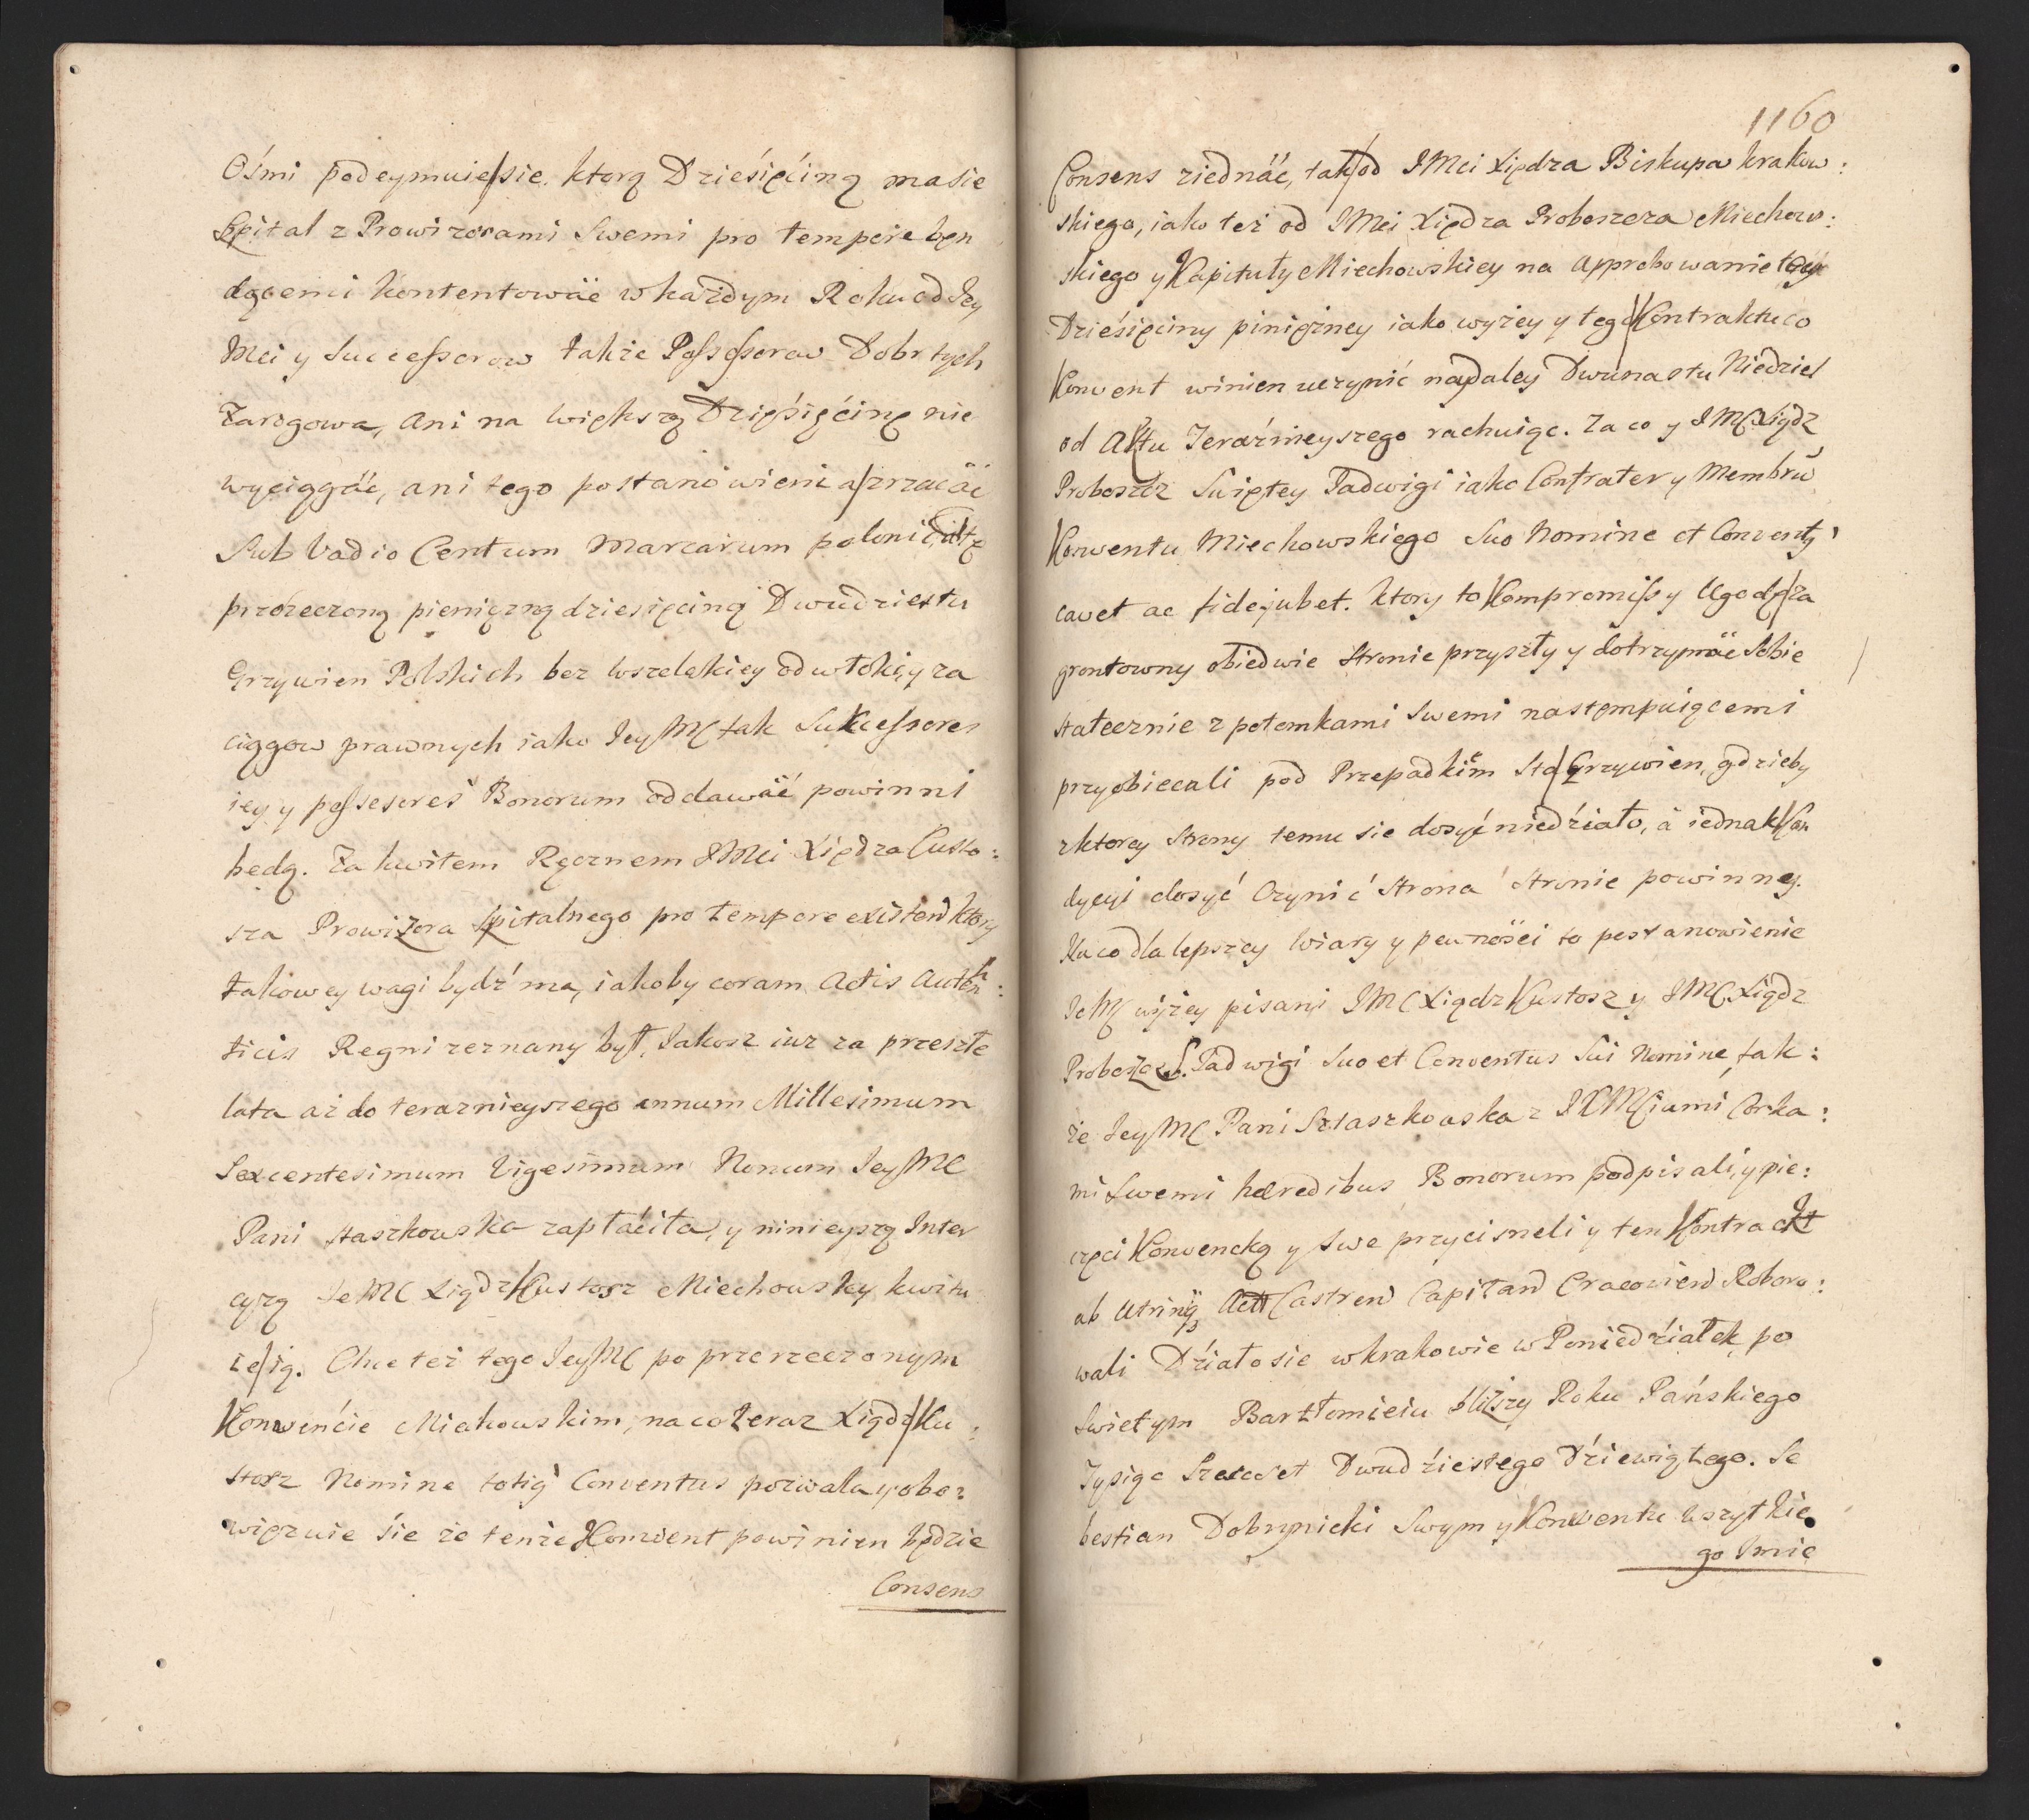 Ośmi podeymuie sie. ktorą Dzieśięćinę ma sie
Szpital z Prowizorami Swemi pro tempore bęn
dącemi kontentowäć w każdym Roku od Jey
Mci y Successorow także Possessorow Dobr tych
Zarogowa, Ani na większą Dzieśięćinę nie
wyciągäć, ani tego postanowienia zrzucäć
Sub Vadio Centum Marcarum
przerzeczoną pieniężną dziesięcinę Dwudziestu
Grzywien Polskich bez wszelakiey odwłoki y za
ciągow prawnych iako Jey MC tak Sukcessores
iey y possesores Bonorum oddawäć powinni
będą. Za kwitem Ręcznem JMci Xiędza Custo:
sza Prowizora Szpitalnego pro tempore existen ktory
takowey wagi bydź ma, iakoby coram Actis Authen:
ticis Regni zeznany był, Jakosz iuz za przeszłe
lata aż do teraznieyszego annum Millesimum
Sexcentesimum Vigesimum Nonum Jey MC
Pani Staszkowska zapłáciła, y ninieyszą Inter
cyzą Je MC Xiądz Kustosz Miechowsky kwitu
ie ią. Chce też tego Jey MC po przerzeczonym
Konwenćie Miakowskim, na co teraz Xiądz Ku:
stosz Nomine totig Conventus pozwala y obo:
więzuie śie że tenże Konwent powinien będzie
Consens
1160
Consens ziednäć, tak od JMci Xiędza Biskupa krakow:
skiego, iako też od JMci Xiędza Proboszcza Miechow:
skiego y Kapituły Miechowskiey na Approbowanie tey
Dzieśięciny piniężney iako wyżey y tego Contraktu co
Konwent winien uczynić naydaley Dwunastu Niedziel
od Aktu Teraźnieyszego rachuiąc. Za co y JMC Xiądz
Proboszcz Swiętey Jadwigi iako Confrater y Membrū
Konwentu Miechowskiego Suo Nomine et Conventg
cavet ac fidejubet. ktory to Kompromiss y Ugodę za
grontowny obiedwie Stronie przyszły y dotrzymäć Sobie
statecznie z potomkami Swemi nastęmpuiącemi
przyobiecali pod Przepadkiem Sta Grzywien, gdzieby
z ktorey Strony temu sie dosyć niedźiało, á iednak Con
dycyi dosyć Czynić Strona Stronie powinney.
Na co dla lepszey Wiary y pewnośći to postanowienie
Je MC wyżey pisany JMC Xiądz Kustosz y JMC Xiądz
Proboszcz S. Jadwigi Suo et Conventus Sui Nomine, tak:
że Jey MC Pani Sztaszkowska z Corka:
mi Swemi hæredibus Bonorum podpisali, y pie:
częci Konwencką y Swe przycisneli y ten Kontrackt
ab Utrinq₃ Actt Castren Capitan Cracovien Roboro:
wali Dźiało sie w krakowie w Poniedźiałek po
Swietym Bartłomieiu bliższy Roku Pańskiego
Tysiąc Szescset Dwudźiestego Dźiewiątego. Se
bestian Dobrynicki Swym y Konwentu wszytkie
go Jmię